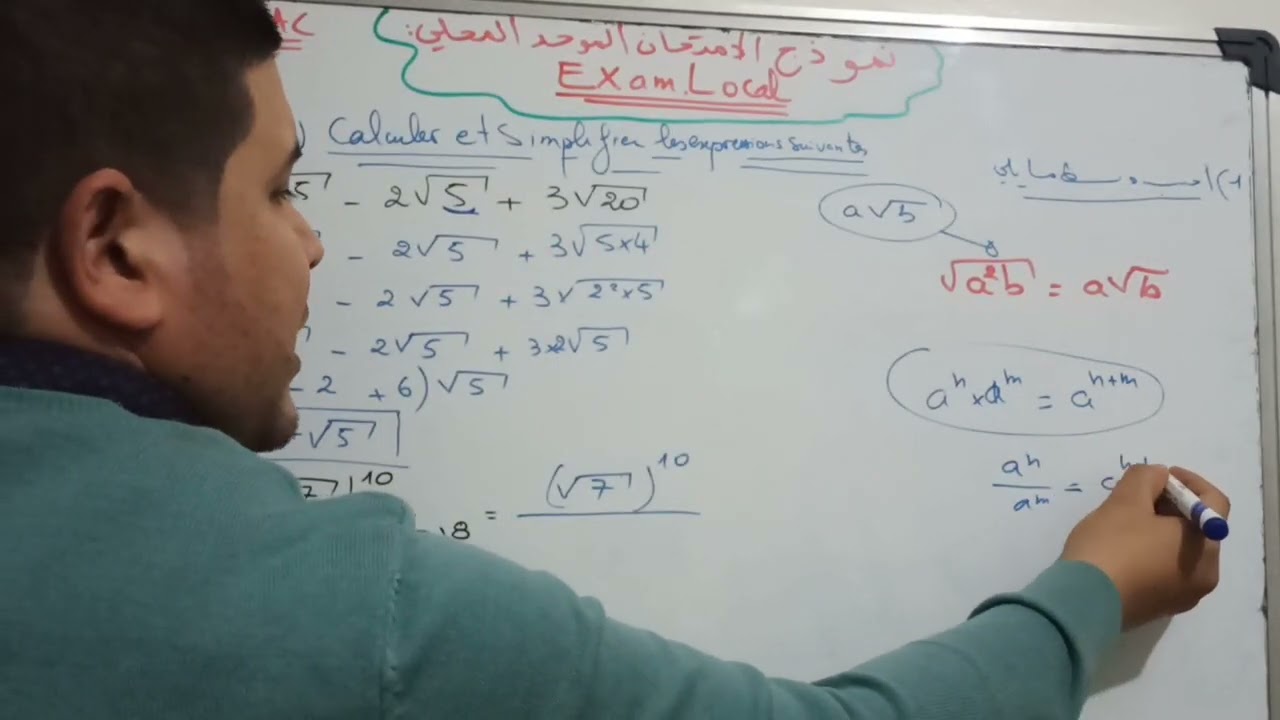 AC
نموذج الامتحان الموحد المحلي:
Exam.Local
) Calculer et Simplifier les expressions suivantes
5 - 2√5 + 3√20
- 2√5 + 3√5×4
- 2√5 + 3√2²×5
- 2√5 + 3×2√5
- 2 + 6)√5
√5
7)¹⁰
8 = (√7)¹⁰
1)
a√b
√a²b = a√b
aⁿ × aᵐ = aⁿ⁺ᵐ
aⁿ/aᵐ =